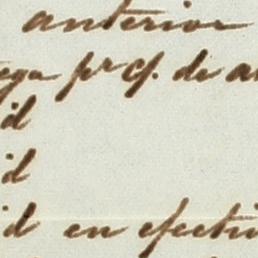 anterior
ega pr cf. de a
id
id
id en efecti